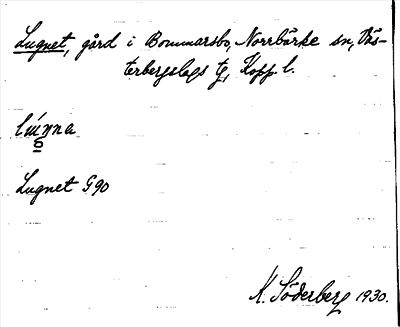 Lugnet, gård i Bommarsbo, Norrbärke sn, Väs-
terbergslags tg, Kopp. l.
Lugnet G90
K. Söderberg 1930.